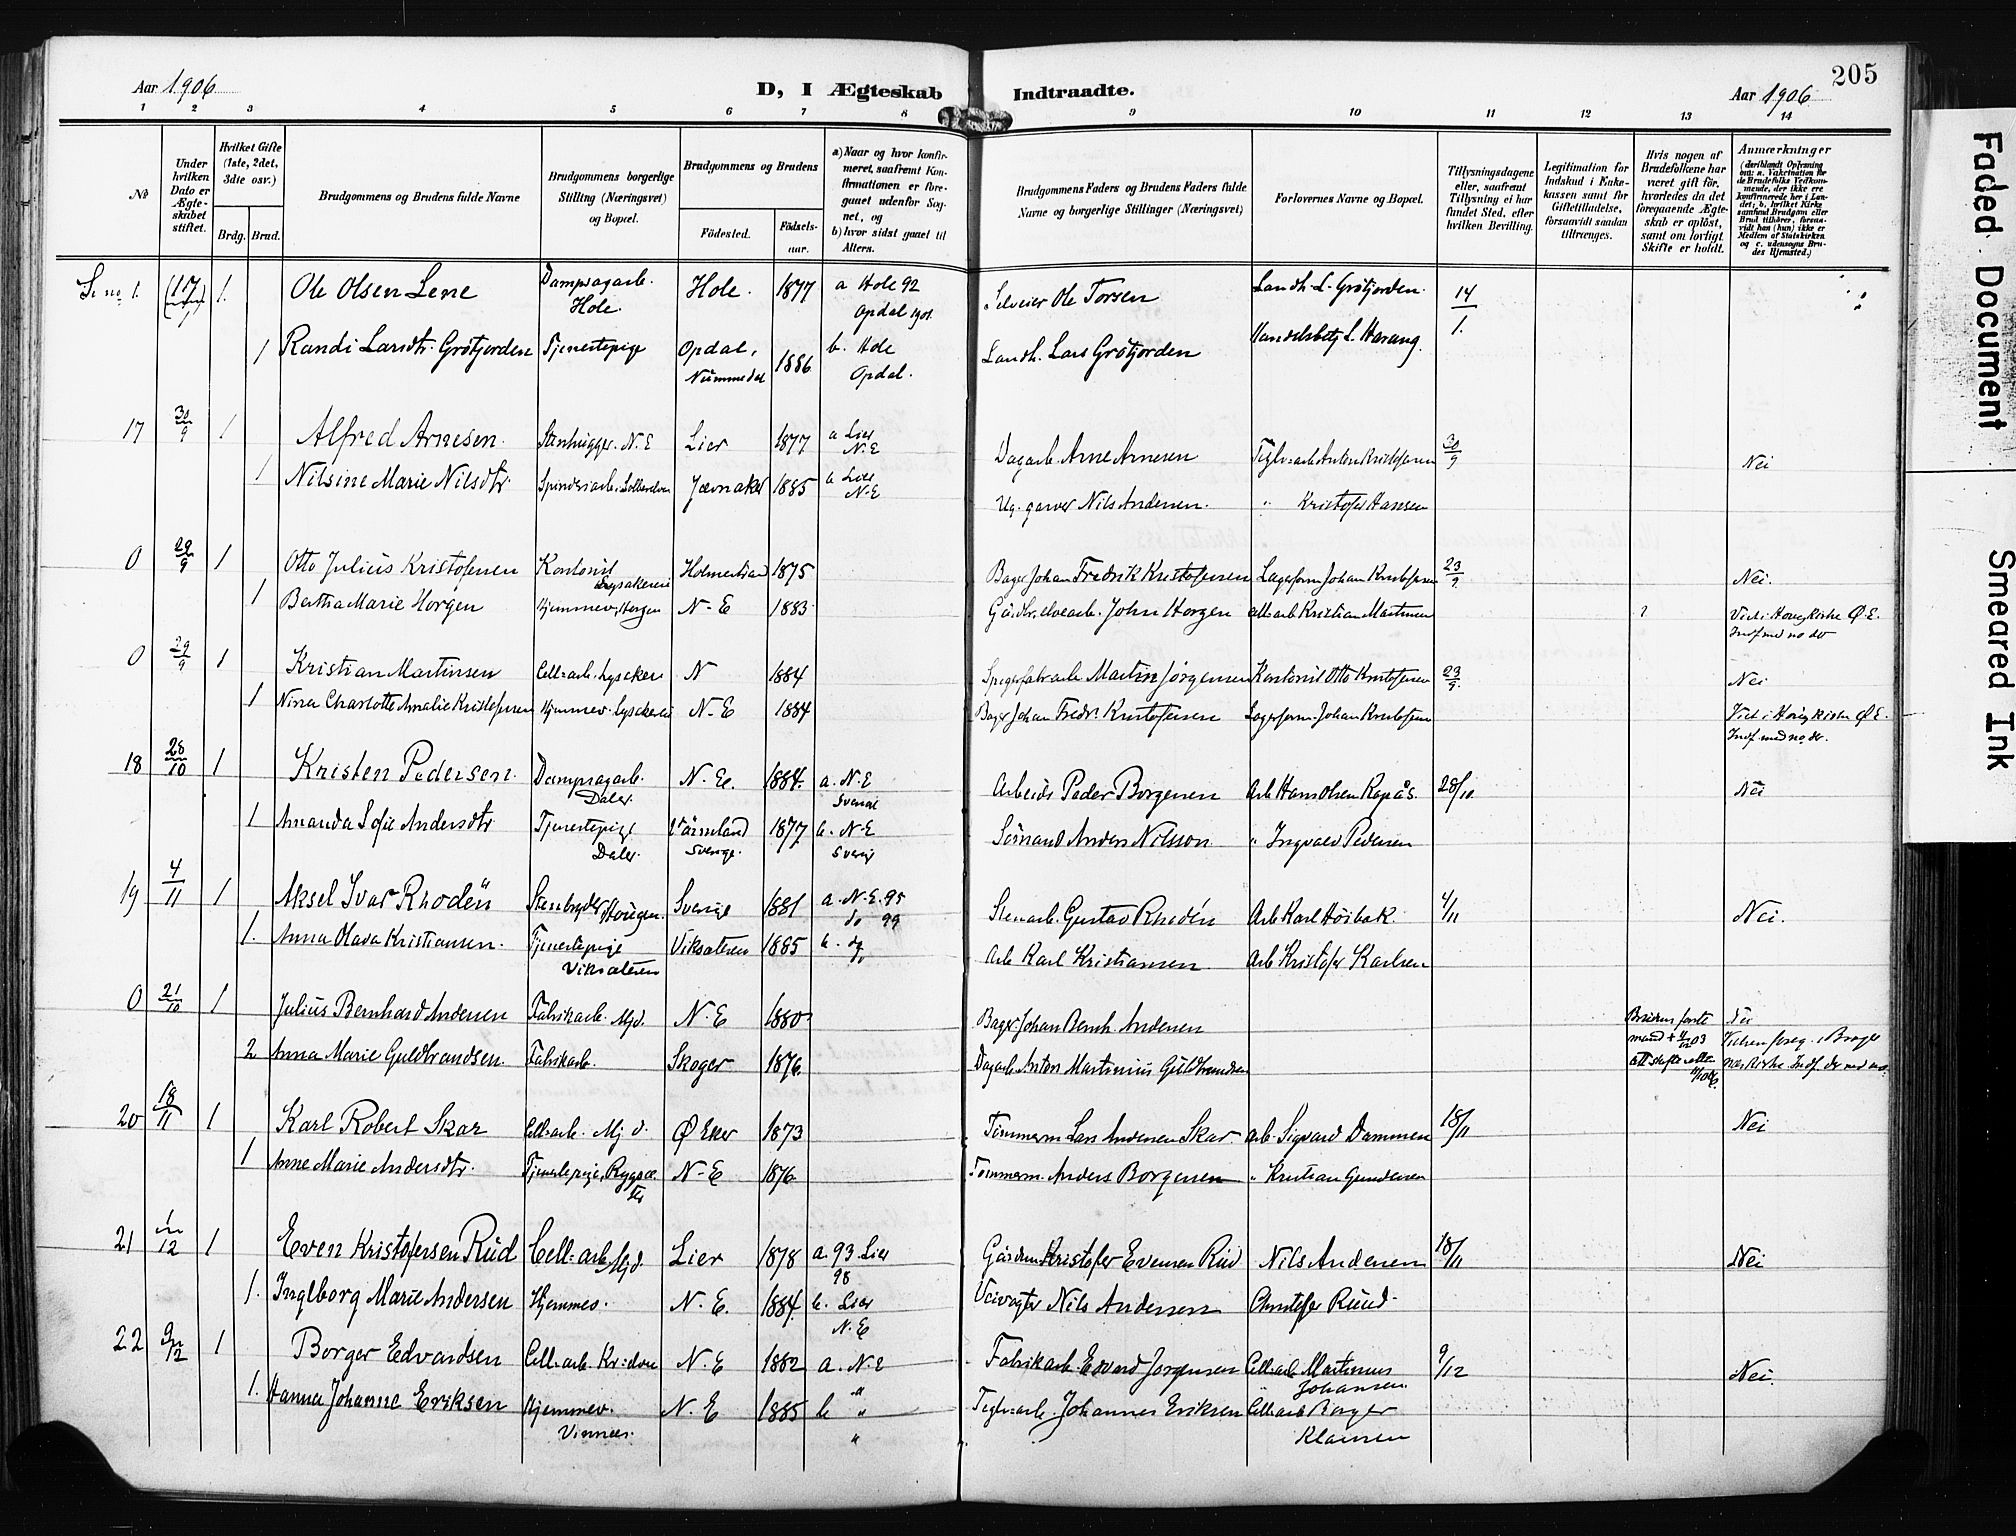 Aar 1906
D, I Ægteskab Indtraadte.
Aar 1906
205
1 2 3 4 5 6 7 8 9 10 11 12 13 14
Nö
Under hvilken Dato er Ægteskabet stiftet.
Hvilket Gifte (1ste, 2det, 3die osv.)
Brdg. Brud.
Brudgommens og Brudens fulde Navne
Brudgommens borgerlige Stilling (Næringsvei) og Bopæl.
Brudgommens og Brudens
Födested. Födselsaar.
a) Naar og hvor konfirmeret, saafremt Konfirmationen er foregaaet udenfor Sognet, og
b) hvor sidst gaaet til Alters.
Brudgommens Faders og Brudens Faders fulde Navne og borgerlige Stillinger (Næringsvei)
Forlovernes Navne og Bopæl.
Tillysningsdagene eller, saafremt Tillysning ei har fundet Sted, efter hvilken Bevilling.
Legitimation for Indskud i Enkekassen samt for Giftetilladelse, forsaavidt saadan tiltrænges.
Hvis nogen af Brudefolkene har været gift för, hvorledes da det foregaaende Ægteskab er oplöst, samt om lovligt Skifte er holdt.
Anmærkninger
(deriblandt Oplysning om: a. Vakcination for de Brudefolks Vedkommende, der ikke ere konfirmerede her i Landet; b. hvilket Kirkesamfund Brudgom eller Brud tilhörer, forsaavidt han (hun) ikke er Medlem af Statskirken og c. udensogns Brudes Hjemsted.)
1. Ole Olsen Lene Dampsagarb. Hole. Hole. 1877 a Hole 92 Opdal 1901 Selveier Ole Torsen Landh. L. Grötjorden. 14/1.
1 Randi Larsdtr. Grötjorden Tjenestepige Opdal, Nummedal 1886 b. Hole Opdal. Landh. Lars Grötjorden Handelsbetj. L. Harang.
17 30/9 1 Alfred Arnesen Stenhugger N.E Lier 1877 a Lier N.E Dagarb. Arne Arnesen Teglv.arb. Anton Kristofersen 30/9 Nei
1 Nilsine Marie Nilsdtr. Jævnaker 1885 Lier N.E garver Nils Andersen. " Kristofer Hansen
0 29/9 1 Otto Julius Kristofersen Kontorist Lysakeren Holmestrand 1875 Bager Johan Fredrik Kristofersen Lagerform. Johan Kristofersen 23/9 Nei.
1 Bertha Marie Horgen Hjemmev. Horgen N-E 1883 John Horgen Cell.arb. Kristian Martinsen ? Viet i Houg Kirke Ø.E.
0 29/9 1 Kristian Martinsen Cell.arb. Lysakeren N 1884 Martin Jörgensen Kontorist Otto Kristofersen 23/9. Nei
1 Nina Charlotte Amalie Kristofersen Hjemmev. Lysakeren N-E 1884 Bager Johan Fredr. Kristofersen Lagerform. Johan Kristofersen Viet i Houg Kirke Ø.E.
18 28/10 1 Kristen Pedersen. Dampsagarb. Daler. N.E. 1884. a. N.E Sverige Arbeids Peder Borgersen Arb Hans Olsen Rapås. 28/10 Nei
1 Amanda Sofie Andersdtr Tjenestepige Daler. Värmland Sverige. 1877 b. N-E Sverig Anders Nilsson. " Ingvald Pedersen
19 4/11 1 Aksel Ivar Rhodén Stenbryder Hougen. Sverige 1881 a. N.E. 95 do 99 Stenarb. Gustav Rhodén Arb Karl Höibak 4/11 Nei.
1. Anna Olava Kristiansen. Tjenestepige Viksæteren Viksæteren 1885 b. do Arb Karl Kristiansen Arb Kristofer Karlsen
0 21/10 1 Julius Bernhard Andersen Fabrikarb. Mjd. N.E 1880 Bager Johan Bernh. Andersen Brudens förste mand Nei
2 Anna Marie Guldbrandsen. Fabrikarb. Skoger 1876 Dagarb Anton Martinius Guldbrandsen
20 18/11 1 Karl Robert Skar Cell.arb. Mjd. Ø Eker 1873 Tömmerm Lars Andersen Skar Arb. Sigvard Dammen 18/11 Nei
1 Anne Marie Andersdtr. Tjenestepige N-E 1876 Tömmerm. Anders Borgersen " Kristian Gundersen
21 1/12 1 Even Kristofersen Rud Cell.arb Mjd. Lier 1878 a 93 Lier 98 Gårdbr. Kristofer Evensen Rud Nils Andersen 18/11 Nei
1. Ingeborg Marie Andersen Hjemmev. N.E. 1884. b. Lier N.E Veivogter Nils Andersen Christofer Ruud
22 9/12 1 Borger Edvardsen Cell.arb. N.E 1882 a. N.E Fabrikarb. Edvard Jörgensen Cell.arb Martinius Johansen. 9/12 Nei.
1. Hanna Johanne Eriksen Hjemmev. Vinnæs. N.E 1885 b " Teglv.arb. Johannes Eriksen Cell.arb Borger Klausen
Faded Document
Smeared Ink